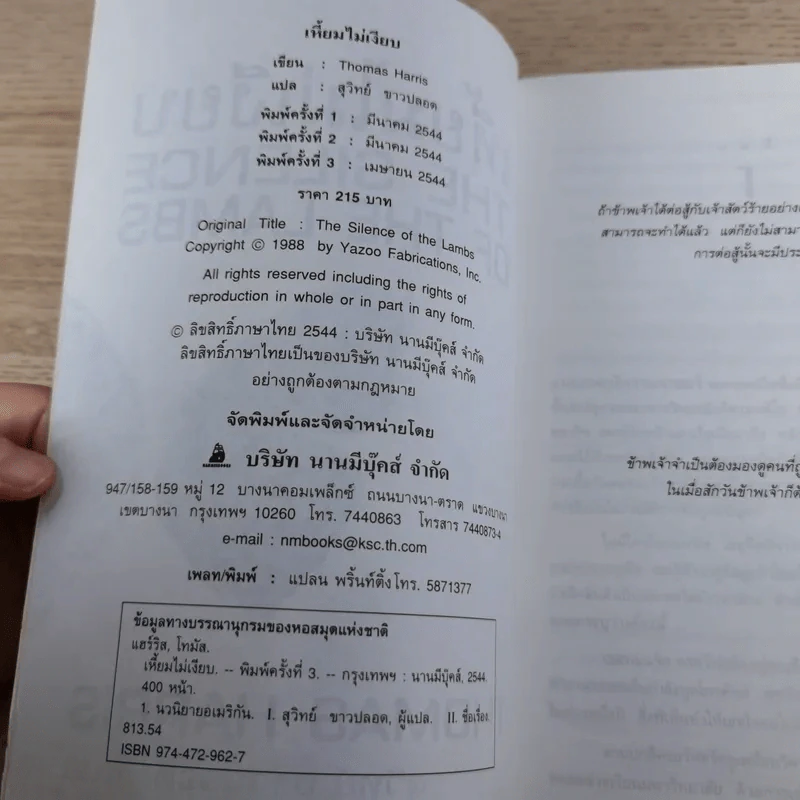 เหี้ยมไม่เงียบ
เขียน : Thomas Harris
แปล : สุวิทย์ ขาวปลอด
พิมพ์ครั้งที่ 1 : มีนาคม 2544
พิมพ์ครั้งที่ 2 : มีนาคม 2544
พิมพ์ครั้งที่ 3 : เมษายน 2544
ราคา 215 บาท
Original Title : The Silence of the Lambs
Copyright © 1988 by Yazoo Fabrications, Inc.
All rights reserved including the rights of
reproduction in whole or in part in any form.
© ลิขสิทธิ์ภาษาไทย 2544 : บริษัท นานมีบุ๊คส์ จำกัด
ลิขสิทธิ์ภาษาไทยเป็นของบริษัท นานมีบุ๊คส์ จำกัด
อย่างถูกต้องตามกฎหมาย
จัดพิมพ์และจัดจำหน่ายโดย
บริษัท นานมีบุ๊คส์ จำกัด
947/158-159 หมู่ 12 บางนาคอมเพล็กซ์ ถนนบางนา-ตราด แขวงบางนา
เขตบางนา กรุงเทพฯ 10260 โทร. 7440863 โทรสาร 7440873-4
e-mail : nmbooks@ksc.th.com
เพลท/พิมพ์ : แปลน พริ้นท์ติ้งโทร. 5871377
ข้อมูลทางบรรณานุกรมของหอสมุดแห่งชาติ
แฮร์ริส, โทมัส.
เหี้ยมไม่เงียบ. -- พิมพ์ครั้งที่ 3. -- กรุงเทพฯ : นานมีบุ๊คส์, 2544.
400 หน้า.
1. นวนิยายอเมริกัน. I. สุวิทย์ ขาวปลอด, ผู้แปล. II. ชื่อเรื่อง.
813.54
ISBN 974-472-962-7
ถ้าข้าพเจ้าได้ต่อสู้กับเจ้าสัตว์ร้ายอย่าง
สามารถจะทำได้แล้ว แต่ก็ยังไม่สามา
การต่อสู้นั้นจะมีประ
ข้าพเจ้าจำเป็นต้องมองดูคนที่ถู
ในเมื่อสักวันข้าพเจ้าก็ต้